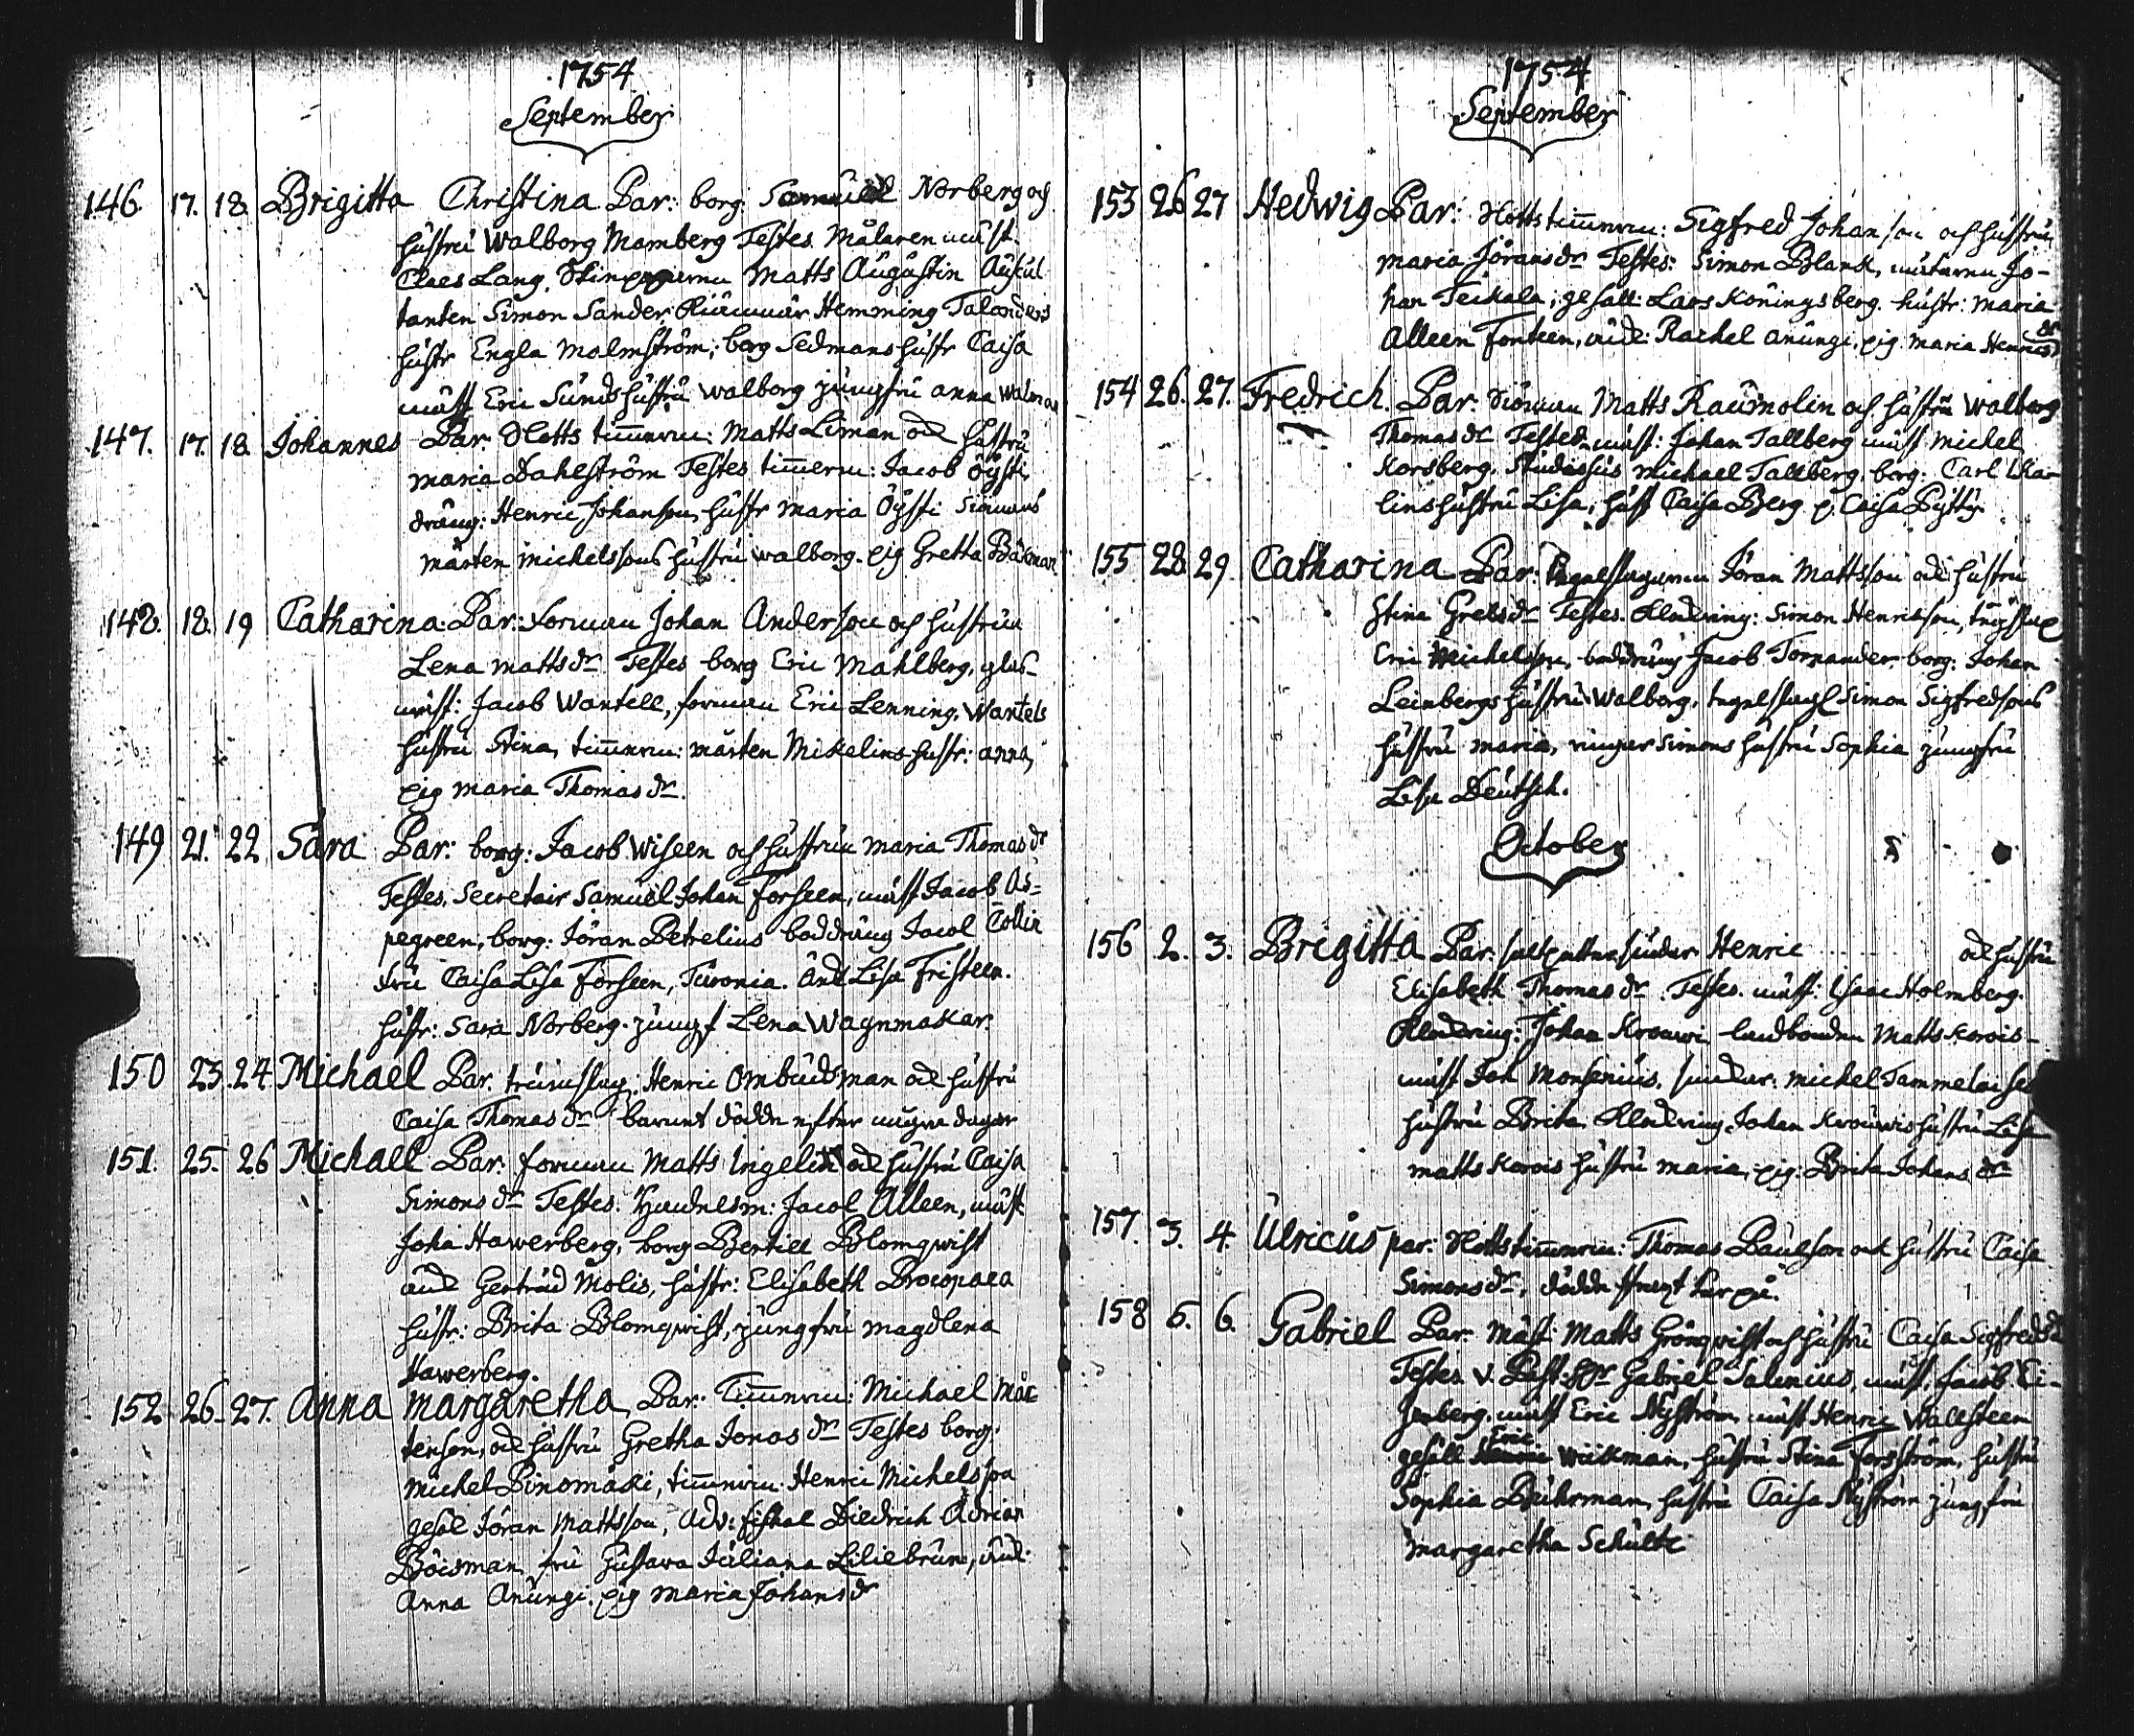 1754
September
146. 17. 18. Brigitta Christina Par: borg: Samuel Norberg och
hustru Walborg Mamberg Testes. Målaren mäst.
Claes Lang. Matts Augustin Auscul
tanten Simon Sander Hemming Talanders
hustr Engla Malmström; borg Sedmans hustr Caisa
mäst Eric Sunds hustru Walborg jungfru Anna Walman
147. 17. 18. Johannes Par. Slotts timmerm: Matts Liman och hustru
Maria Dahlström Testes timmerm: Jacob Öysti
dräng: Henric Johanson, hustr Maria Öysti
Mårten Michelssons hustru Walborg. pig Gretta Bäkman
148. 18. 19 Catharina. Par: forman Johan Anderson och hustrun
Lena Matts dr Testes borg Eric Mahlberg, glas-
mäst: Jacob Wantell, forman Eric Lenning, Wantels
hustru Stina, timmerm: Mårten Mikelins hustr: Anna,
pig Maria Thomas dr.
149 21. 22 Sara Par: borg: Jacob Wiseen och hustrun Maria Thomas dr
Testes. Secretair Samuel Johan Forseen, mäst Jacob As-
pegreen, borg: Jöran Petrelius baddräng Jacob Collin
fru Caisa Lisa Forseen, Turonia. Änk Lisa Fristeen.
hustr: Sara Norberg. jungf Lena Wagnmakar.
150 23. 24. Michael Par. Henric Ombudsman och hustru
Caisa Thomas dr barnet dödde efter några dagar
151. 25. 26 Michall Par: forman Matts Ingelin och hustru Caisa
Simons dr Testes. Handelsm: Jacob Alleen, mäst
Joha Hawerberg, borg Bertill Blomqwist
änk Gertrud Molis, hustr: Elisabeth Procopaea
hustr: Brita Blomqwist, jungfru Magdlena
Hawerberg.
152 26. 27. Anna Margaretha, Par: Timmerm: Michael Mår
tenson, och hustru Gretha Jonas dr Testes borg.
Michel Pinomäki, timmerm: Henric Michelsson
gesäl Jöran Mattsson, Adv: fiskal Diedrich Adrian
Böisman, fru Gustava Juliana Liliebrun, änk:
Anna Anungi. pig Maria Johans dr
1754
September
153 26 27 Hedwig Par: Slotts timmerm: Sigfred Johanson och hustru
Maria Jörans dr Testes: Simon Blank, Jo-
han Teikala; gesäll: Lars Köningsberg. hustr: Maria
Alleen Fonteen, änk: Rachel Anungi, pig. Maria Henrics dr
154 26. 27. Fredrich. Par. Matts Raumolin och hustru Walborg
Thomas dr Testes mäst: Johan Tallberg mäst Michel
Korsberg. Studiosus Michael Tallberg, borg: Carl
lins hustru Lisa, hust Caisa Berg p. Caisa Pytty
155 28. 29. Catharina Par: Jöran Mattsson och hustru
Stina Grels dr Testes. Simon Henricson,
Eric Michelsson, baddräng Jacob Tornander borg: Johan
Leinbergs hustru Walborg, Simon Sigfredsons
hustru Maria, ringar Simons hustru Sophia jungfru
Lisa Deutsch.
October
156 2. 3. Brigitta Par. saltpettersiudar Henric och hustru
Elisabeth Thomas dr. Testes. mäst: Isaac Holmberg.
Johan Krouwi landbonden Matts Korois-
mäst Joh Monsenius, siudar: Michel Tammelaises
hustru Brita, Johan Krouwis hustru Lisa
Matts Korois hustru Maria, pig: Brita Johans dr
157. 3. 4. Ulricus par: Slottstimmerm: Thomas Paulson och hustru Caisa
Simons dr, dödde strax därpå.
158 5. 6. Gabriel Par. Mäst: Matts Grönqwist och hustru Caisa Sigfreds dr
Testes. V. Past: Hr Gabriel Salenius, mäst. Jacob Ei-
senberg. mäst Eric Nyström mäst Henric Wallsteen
gesäll Eric Wickman, hustru Stina Forsström, hustru
Sophia Buhrman, hustru Caisa Nyström jungfru
Margaretha Schultz